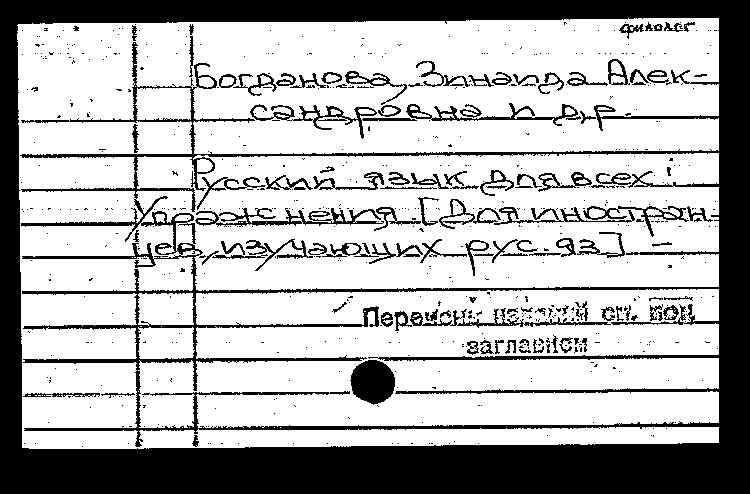 филолог
Богданова, Зинаида Алек-
сандровна и др.
Русский язык для всех:
Упражнения. [Для иностран-
цев, изучающих рус. яз] –
Перечень изданий см. под
заглавием